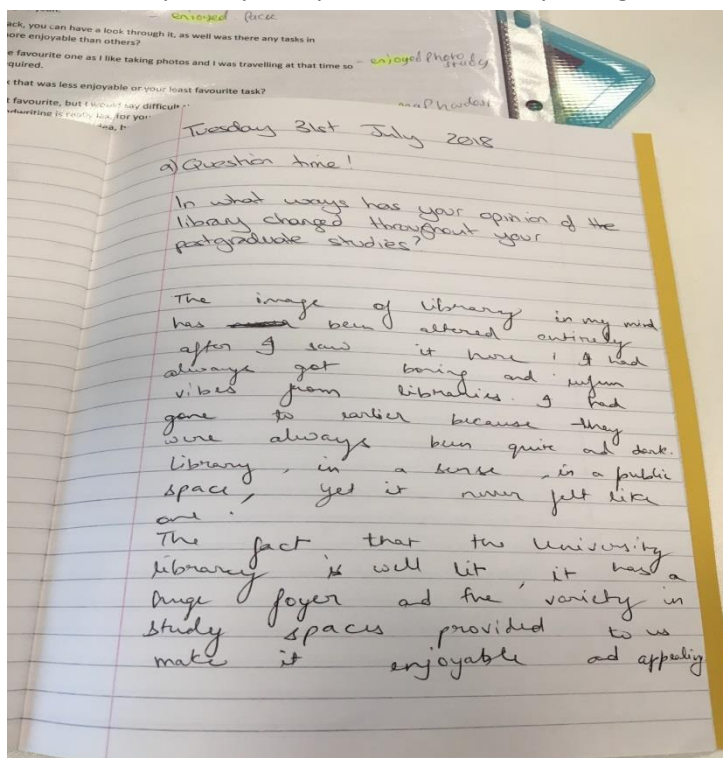 enjoyed
ack, you can have a look through it, as well was there any tasks in
ore enjoyable than others?
e favourite one as I like taking photos and I was travelling at that time so
quired.
- enjoyed Photo study
that was less enjoyable or your least favourite task?
t favourite, but I would say difficult
handwriting is really for you
Tuesday 31st July 2018
a) Question time!
In what ways has your opinion of the
library changed throughout your
postgraduate studies?
The image of library in my mind
has been altered entirely
after I saw it here, I had
always got boring and
vibes from libraries. I had
gone to earlier because they
were always been quite and dark.
Library, in a sense, is a public
space, yet it never felt like
one.
The fact that the University
library is well lit, it has a
huge foyer and the variety in
study spaces provided to us
make it enjoyable and appealing